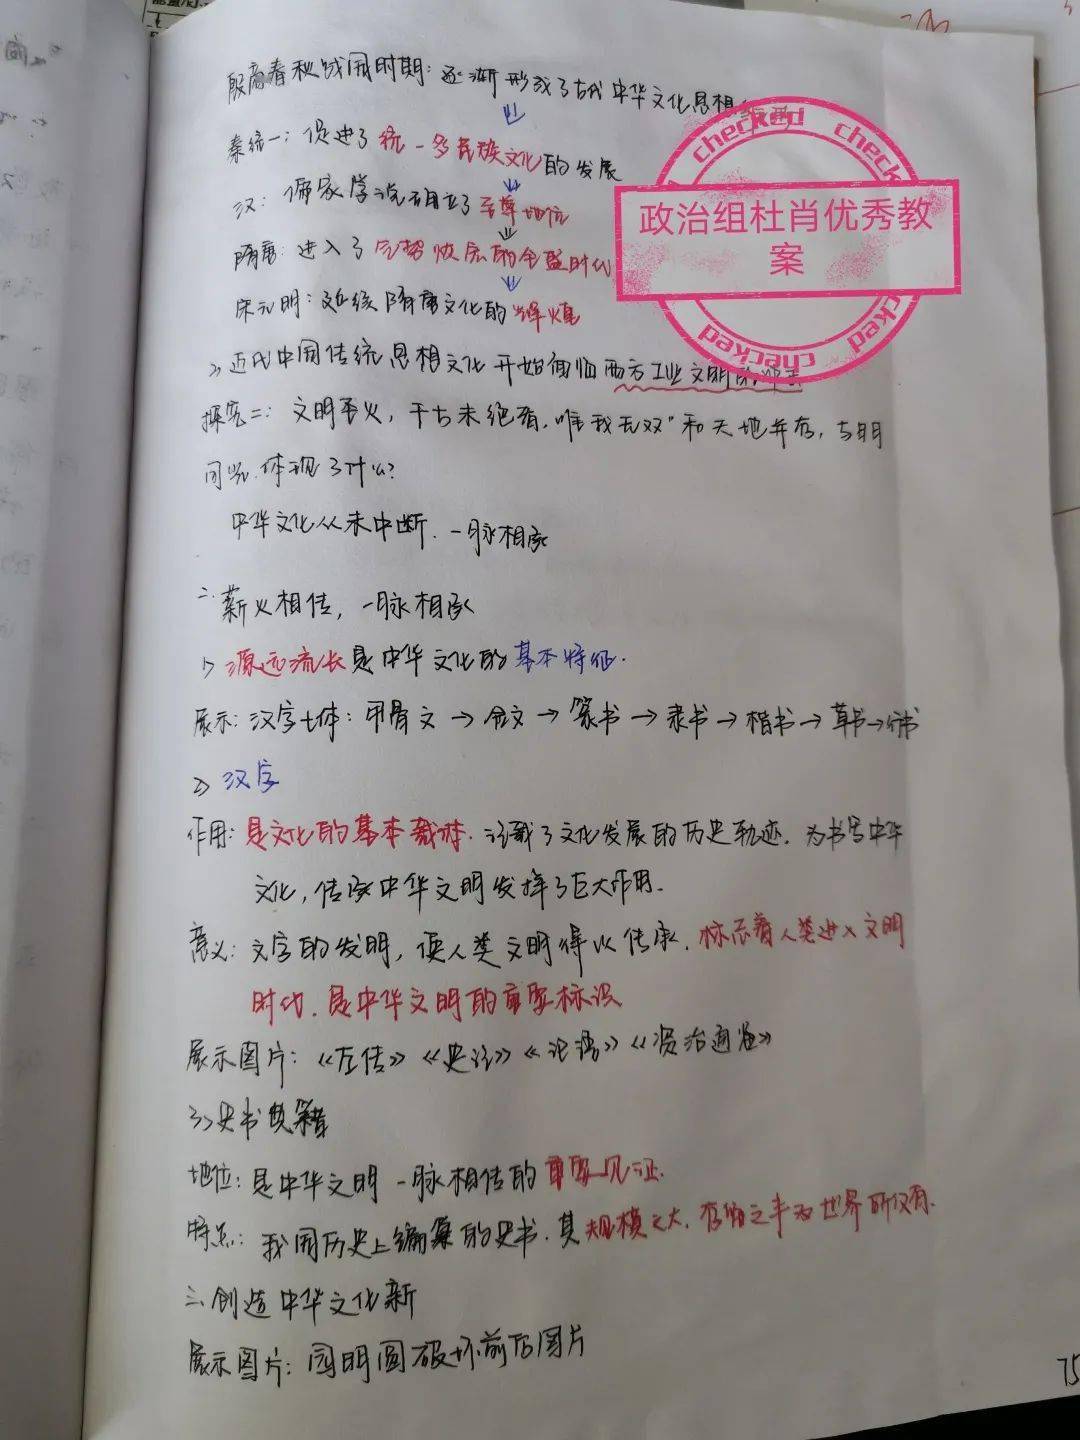 殷商春秋战国时期：逐渐形成了古代中华文化思想
秦统一：促进了统一多民族文化的发展
汉：儒家学说确立了至尊地位
隋唐：进入了气势恢宏的全盛时代
宋元明：延续隋唐文化的辉煌
2) 近代中国传统思想文化开始面临西方工业文明的冲击
checked checked checked checked
政治组杜肖优秀教
案
探究二：文明圣火，千古未绝者，唯我无双"和天地并存，与日月
同光，体现了什么？
中华文化从未中断，一脉相承
二、薪火相传，一脉相承
1) 源远流长是中华文化的基本特征.
展示：汉字七体：甲骨文→金文→篆书→隶书→楷书→草书→行书
2) 汉字
作用：是文化的基本载体. 记载了文化发展的历史轨迹. 为书写中华
文化，传承中华文明发挥了巨大作用.
意义：文字的发明，使人类文明得以传承. 标志着人类进入文明
时代. 是中华文明的重要标识
展示图片：《左传》《史记》《论语》《资治通鉴》
3) 史书典籍
地位：是中华文明一脉相传的重要见证.
特点：我国历史上编纂的史书. 其规模之大，存留之丰为世界所仅有.
三、创造中华文化新
展示图片：圆明园破坏前后图片
75